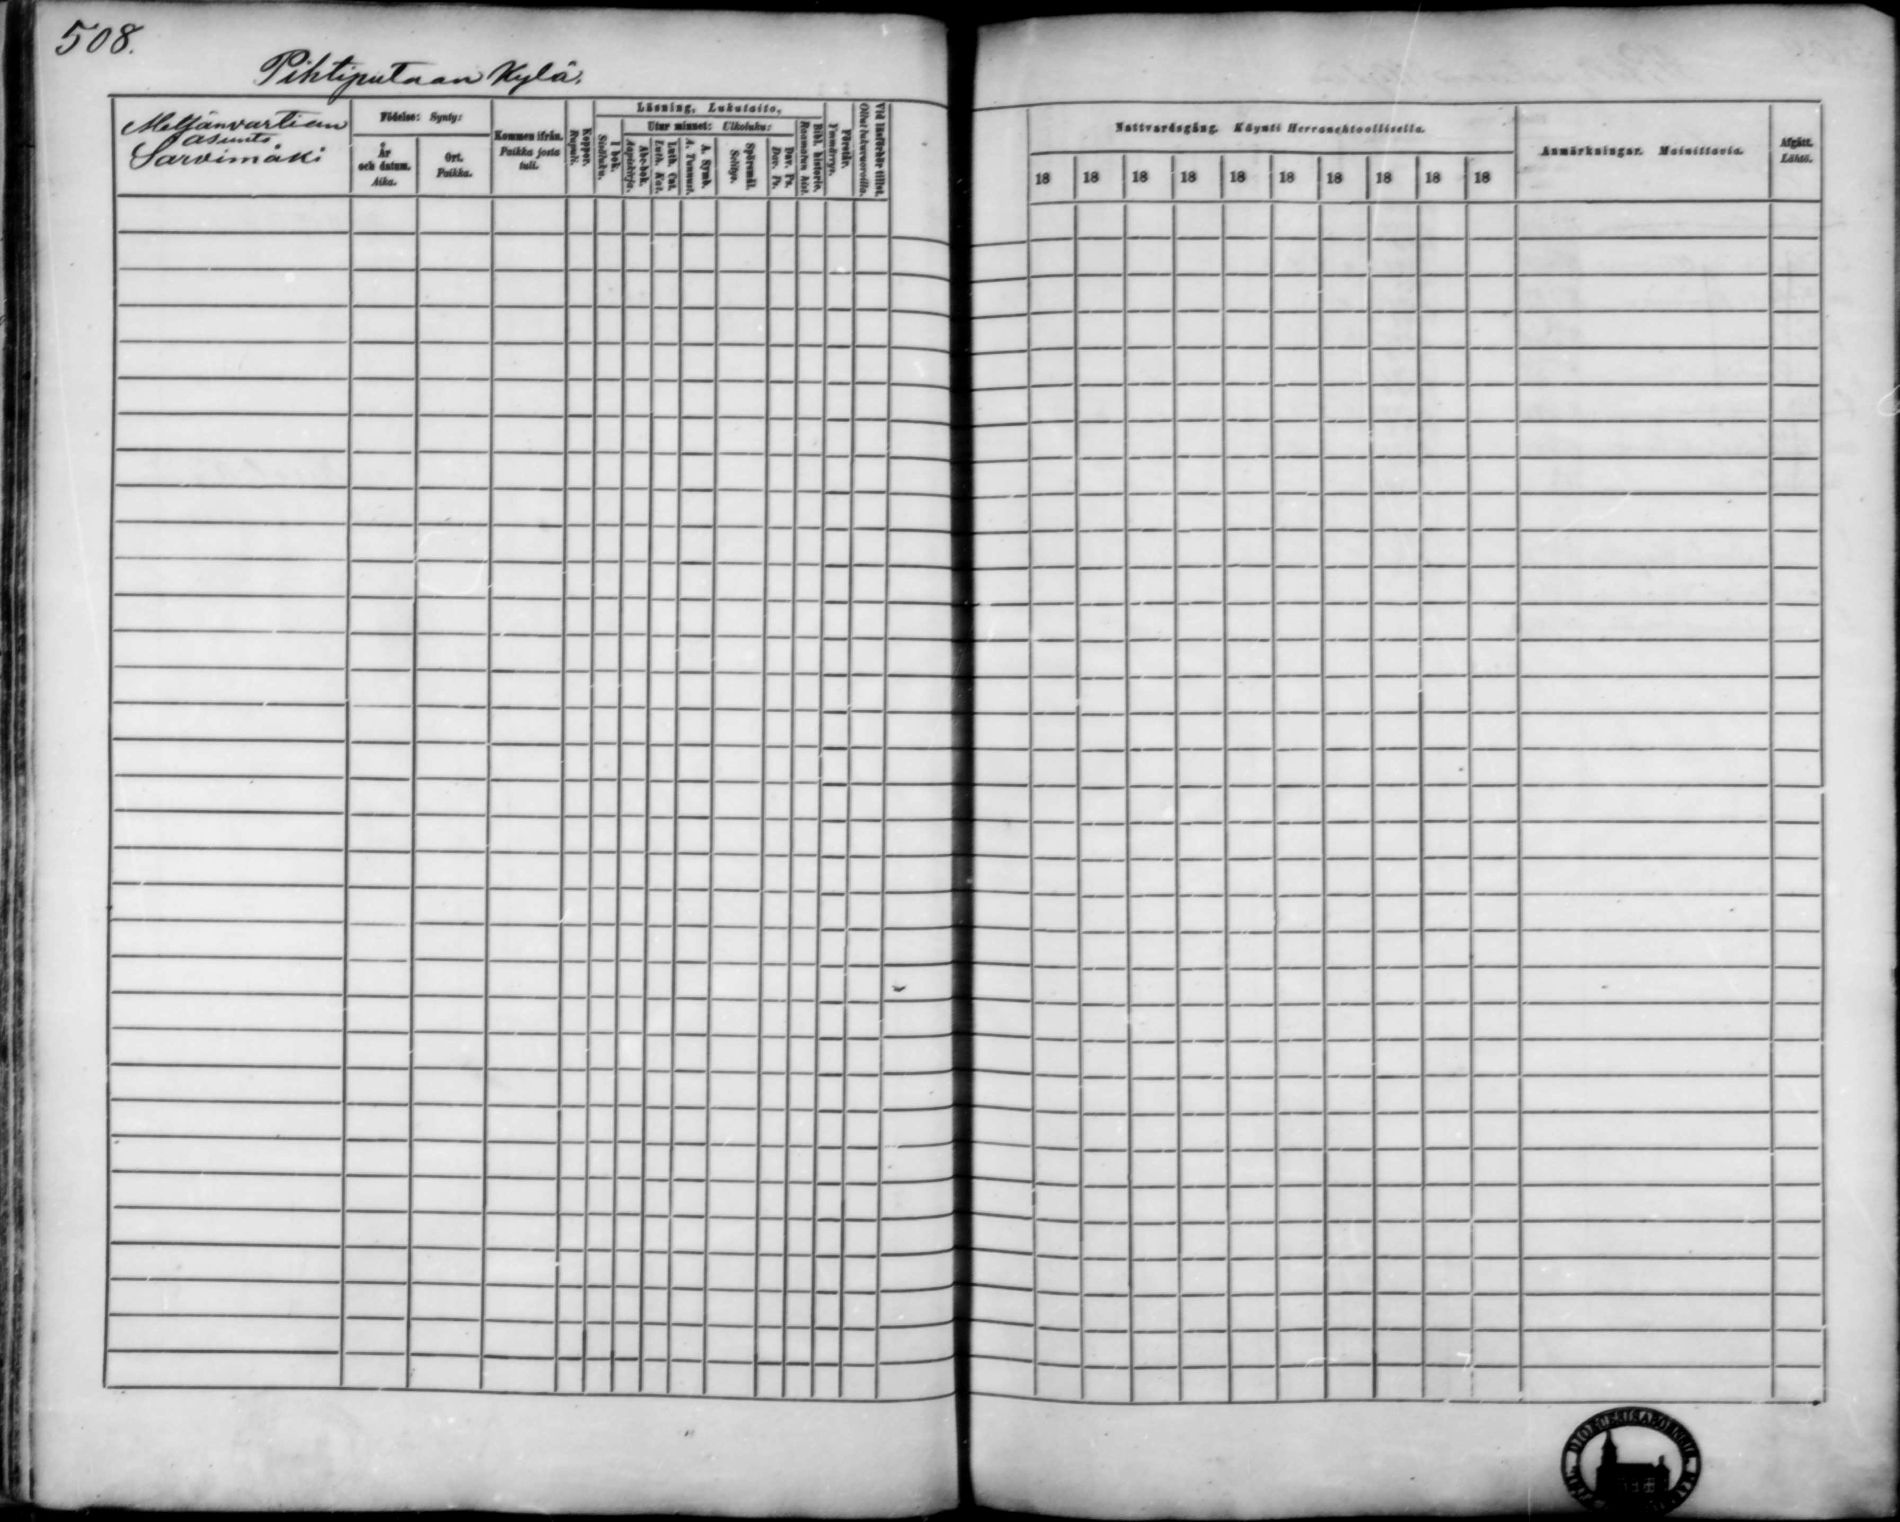 508.
Pihtiputaan Kylä.
Metsänvartian
asunto
Sarvimäki
Födelse: Synty:
År
och datum.
Aika.
Ort.
Paikka.
Kommen ifrån.
Paikka josta
tuli.
Koppor.
Rupuli.
Läsning, Lukutaito,
I bok.
Sisäluku.
Utur minnet: Ulkoluku:
Abc-bok.
Aapiskirja.
Luth. Cat.
Luth. Kat.
A. Symb.
A. Tunnust.
Spörsmål.
Selitys.
Dav. Ps.
Dav. Ps.
Bibl. historie.
Raamatun hist.
Förstår.
Ymmärrys.
Vid läseförhör tillst.
Ollut lukuvuoroilla.
Nattvardsgång. Käynti Herranehtoollisella.
18 18 18 18 18 18 18 18 18 18
Anmärkningar. Mainittavia.
Afgått.
Lähtö.